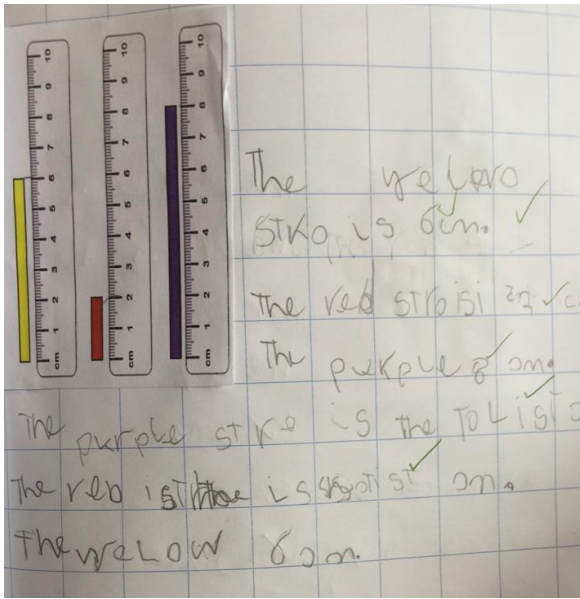 cm 1 2 3 4 5 6 7 8 9 10
cm 1 2 3 4 5 6 7 8 9 10
cm 1 2 3 4 5 6 7 8 9 10
The yelowo
stro is 6cm.
The red stro isi 2
The purple 8 cm.
The purple stro is the Tolist
The reb is is cm.
The yelow 6 cm.